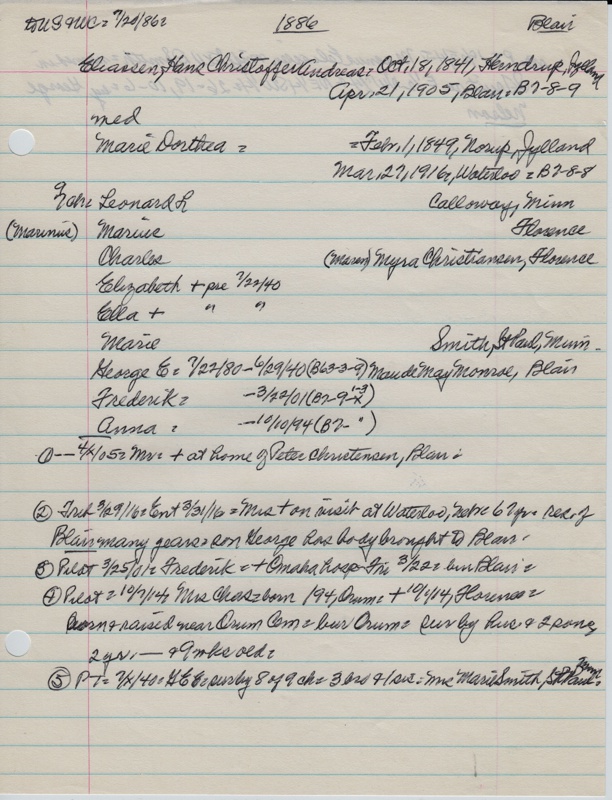 to US & WC = 7/20/86 = 1886 Blair
Eliassen, Hans Christoffer Andreas = Oct, 18, 1841, Herndrup, Jylland
Apr, 21, 1905, Blair = B7-8-9
med
Marie Dorthea = = Febr, 1, 1849, Norup, Jylland
Mar, 27, 1916, Waterloo = B7-8-8
9 ch = Leonard L Calloway, Minn
(Marinus) Marius Florence
Charles (Maren) Myra Christiansen, Florence
Elizabeth + pre 7/22/40
Ella + " "
Marie Smith, St Paul, Minn.
George E = 7/22/80 - 6/29/40 (B63-3-9) Maude May Monroe, Blair
Frederik = - 3/22/01 (B7-9-
Anna = - 10/10/94 (B7- "
① -- 4/X/05 = Mr = + at home of Peter Christensen, Blair =
② Trib 3/29/16 = Ent 3/31/16 = Mrs + on visit at Waterloo, Nebr = 67 yr = res. of
Blair many years = son George has body brought to Blair.
③ Pilot 3/25/01 = Frederik = + Omaha hosp Fri 3/22 = bur Blair =
④ Pilot = 10/7/14 Mrs Chas = born 194, Orum = + 10/1/14, Florence =
born & raised near Orum Cem = bur Orum = sur by hus & 2 sons,
2 yrs. — & 9 mks old =
⑤ P-T = 7/X/40 = G E E = sur by 8 of 9 ch = 3 bro & 1 sis = Mrs Marie Smith, St Paul, Minn =